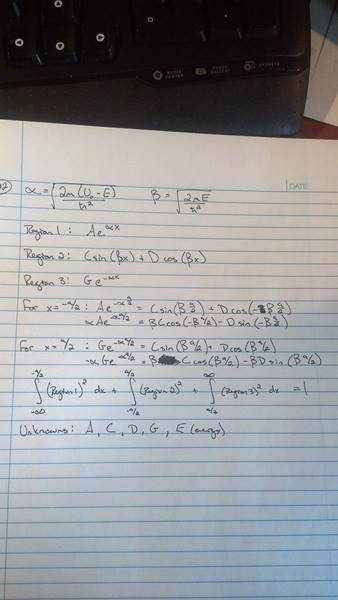 MEDIA CENTER
FAVORITES
DATE
#2 α = √(2m(U₀-E)/ħ²) β = √(2mE/ħ²)
Region 1: Ae^(αx)
Region 2: C sin(βx) + D cos(βx)
Region 3: Ge^(-αx)
For x = -a/2 : Ae^(-α a/2) = C sin(β a/2) + D cos(-β a/2)
αAe^(-α a/2) = βC cos(-β a/2) - D sin(-β a/2)
For x = a/2 : Ge^(-α a/2) = C sin(β a/2) + D cos(β a/2)
-αGe^(-α a/2) = β C cos(β a/2) - βD sin(β a/2)
∫_{-∞}^{-a/2} (Region 1)² dx + ∫_{-a/2}^{a/2} (Region 2)² dx + ∫_{a/2}^{∞} (Region 3)² dx = 1
Unknowns: A, C, D, G, E (energy)